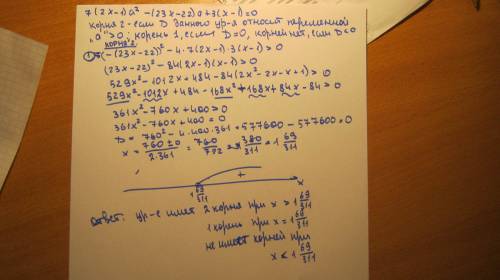 7(2x-1)a² -(23x-22)a+3(x-1)=0
корня 2-если D данного ур-я относит переменной
"a">0; корень 1, если D=0, корней нет, если D<0
корня 2
① (-(23x-22))² -4·7(2x-1)·3(x-1)>0
(23x-22)² -84(2x-1)(x-1)>0
529x² -1012x+484-84(2x²-2x-x+1)>0
529x²-1012x+484-168x²+168x+84x-84>0
361x²-760x+400>0
361x²-760x+400=0
D=760²-4·400·361=577600-577600=0
x= 760±0/2·361 = 760/722 = 380/311 = 1 69/311
+
1 69/311 x
Ответ: ур-е имеет 2 корня при x>1 69/311
1 корень при x=1 69/311
не имеет корней при
x<1 69/311